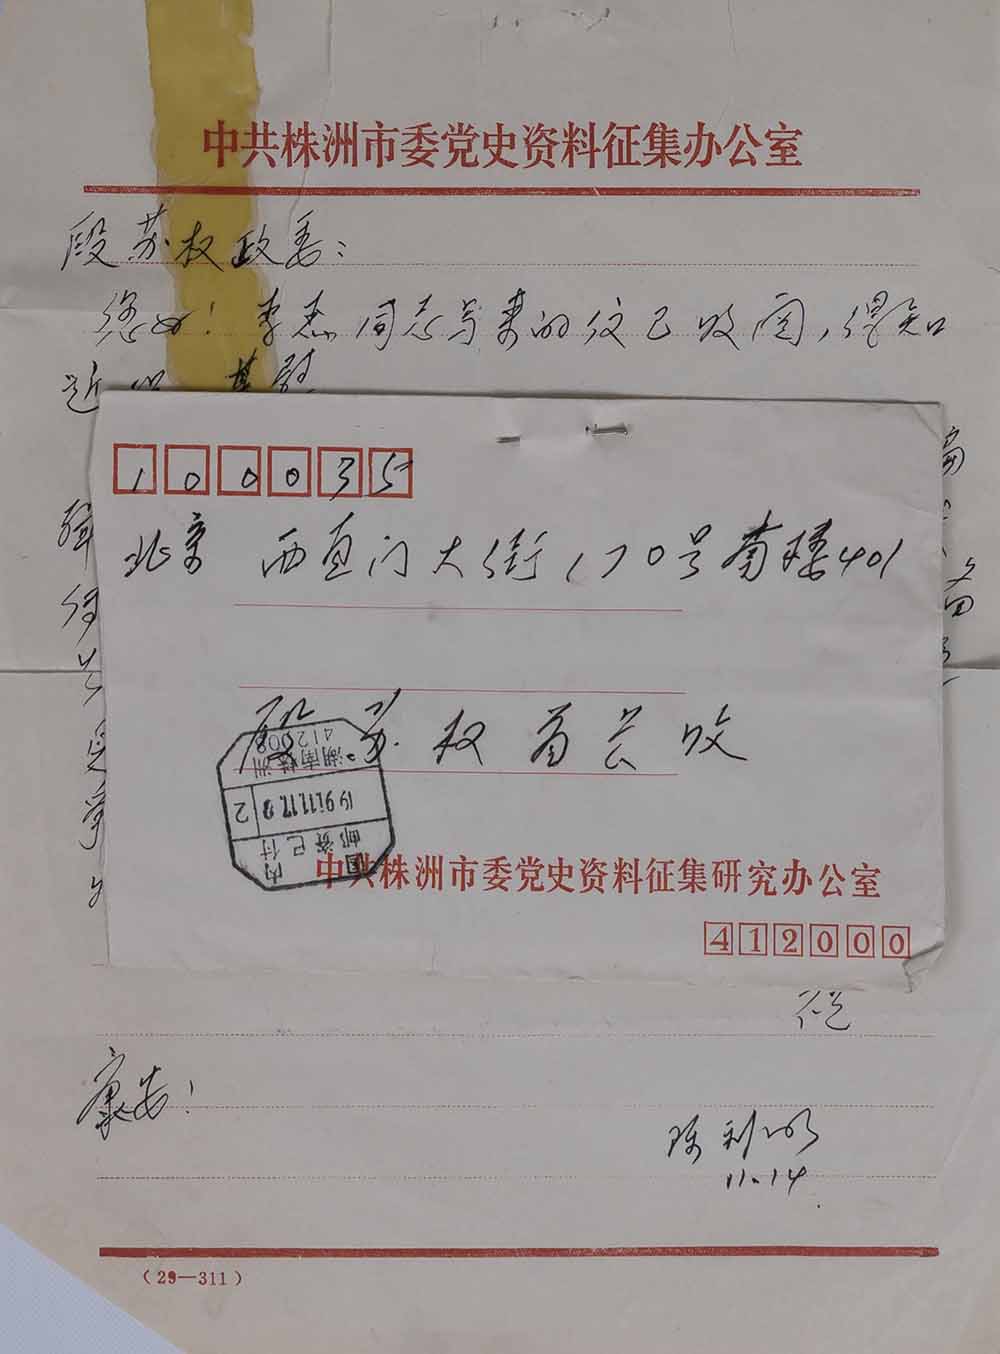 中共株洲市委党史资料征集办公室
段苏权政委：
您好！李杰同志写来的信已收阅，得知
近况 甚慰
100035
北京 西直门大街170号南楼401
段苏权首长收
412008
湖南株洲
1991.11.17.
2
国内
邮资已付
中共株洲市委党史资料征集研究办公室
412000
祝
康安！
陈利明
11.14
（29—311）